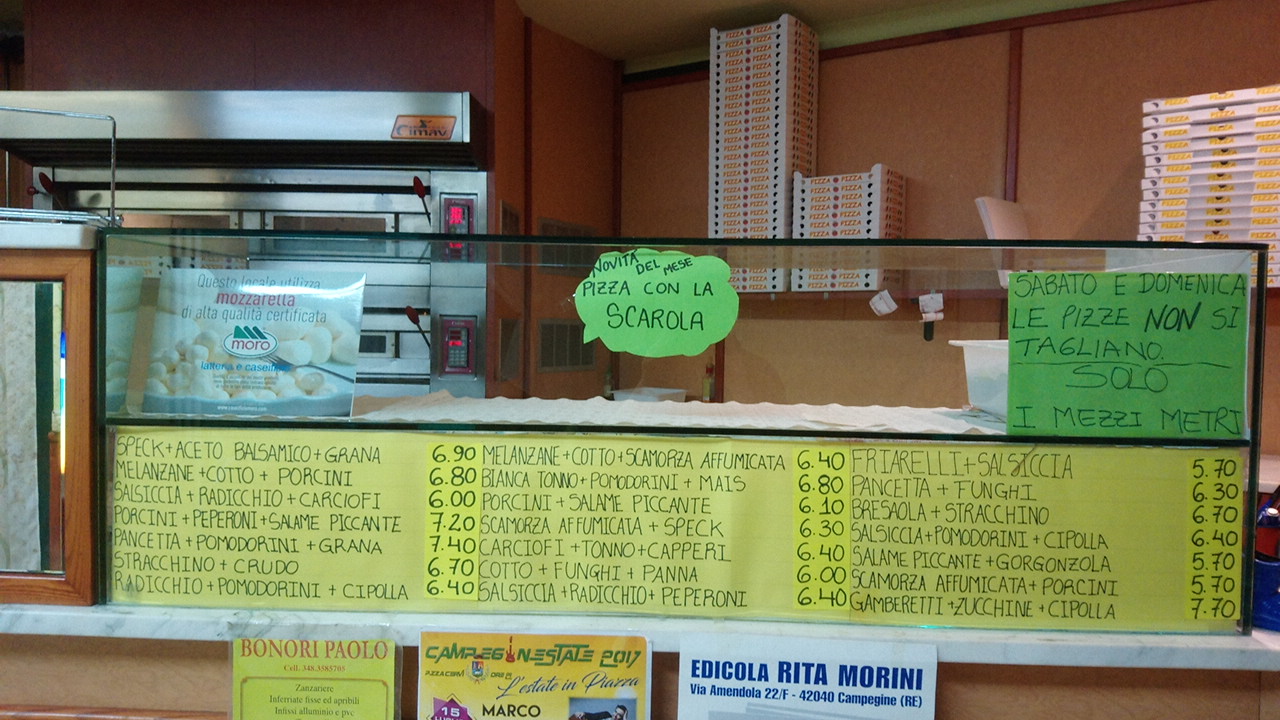 PIZZA PIZZA
Cimav
Questo locale utilizza
mozzarella
di alta qualità certificata
moro
latteria e caseificio
NOVITÀ DEL MESE
PIZZA CON LA
SCAROLA
SABATO E DOMENICA
LE PIZZE NON SI
TAGLIANO.
SOLO
I MEZZI METRI
SPECK+ACETO BALSAMICO+GRANA 6.90
MELANZANE+COTTO+PORCINI 6.80
SALSICCIA+RADICCHIO+CARCIOFI 6.00
PORCINI+PEPERONI+SALAME PICCANTE 7.20
PANCETTA+POMODORINI+GRANA 7.40
STRACCHINO+CRUDO 6.70
RADICCHIO+POMODORINI+CIPOLLA 6.40
MELANZANE+COTTO+SCAMORZA AFFUMICATA 6.40
BIANCA TONNO+POMODORINI+MAIS 6.80
PORCINI+SALAME PICCANTE 6.10
SCAMORZA AFFUMICATA+SPECK 6.30
CARCIOFI+TONNO+CAPPERI 6.40
COTTO+FUNGHI+PANNA 6.00
SALSICCIA+RADICCHIO+PEPERONI 6.40
FRIARELLI+SALSICCIA 5.70
PANCETTA+FUNGHI 6.30
BRESAOLA+STRACCHINO 6.70
SALSICCIA+POMODORINI+CIPOLLA 6.40
SALAME PICCANTE+GORGONZOLA 5.70
SCAMORZA AFFUMICATA+PORCINI 5.70
GAMBERETTI+ZUCCHINE+CIPOLLA 7.70
BONORI PAOLO
Cell. 348.3585705
Zanzariere
Inferriate fisse ed apribili
Infissi alluminio e pvc
CAMPEGINESTATE 2017
L'estate in Piazza
15
MARCO
EDICOLA RITA MORINI
Via Amendola 22/F - 42040 Campegine (RE)